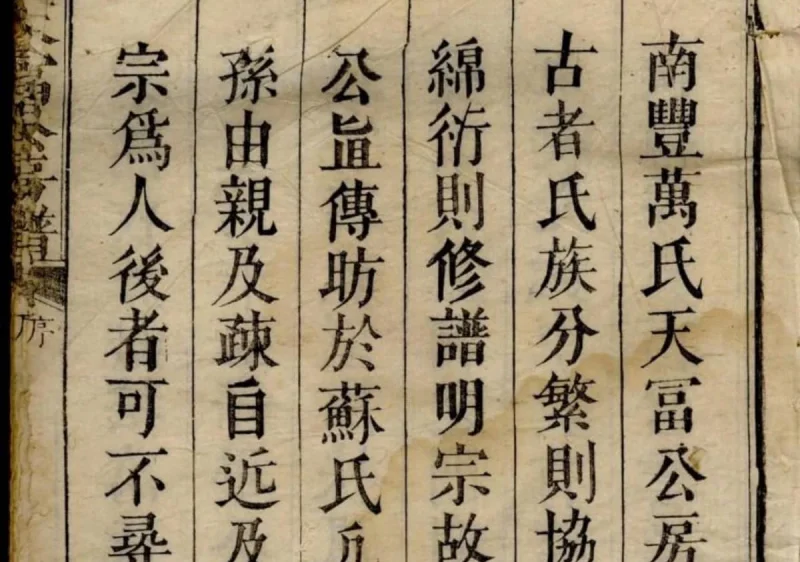 南豐萬氏天冨公房
古者氏族分繁則協
綿衍則修譜明宗故
公㫖傳昉於蘇氏凡
孫由親及疎自近及
宗爲人後者可不尋
房譜
房